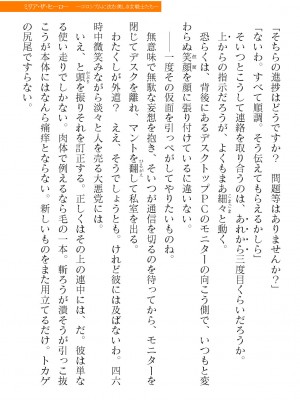 「そちらの進捗はどうですか？　問題等はありませんか？」
「ないわ。すべて順調。そう伝えてもらえるかしら」
そいつとこうして連絡を取り合うのは、あれから三度目くらいだろうか。
上からの指示だろうが、よくもまあ細々と動く。
恐らくは、背後にあるデスクトップPCのモニターの向こう側で、いつもと変
わらぬ笑顔を顔に張り付けているに違いない。
一度その仮面を引っぺがしてやりたいものね。
無意味で無駄な妄想を抱き、そいつが通信を切るのを待ってから、モニターを
閉じてデスクを離れ、マントを翻して私室を出る。
わたくしが外道？　ええ、そうでしょうとも。けれど彼には及ばないわ。四六
時中微笑みながら淡々と人を売る大悪党には。
いえ、と頭を振りそれを訂正する。正しくはその上の連中には、だ。彼は単な
る使い走りでしかない。肉体で例えるなら毛の一本。斬ろうが潰そうが引っこ抜
こうが本体にはなんら痛痒とならない。新しいものをまた用立てるだけ。トカゲ
の尻尾ですらない。